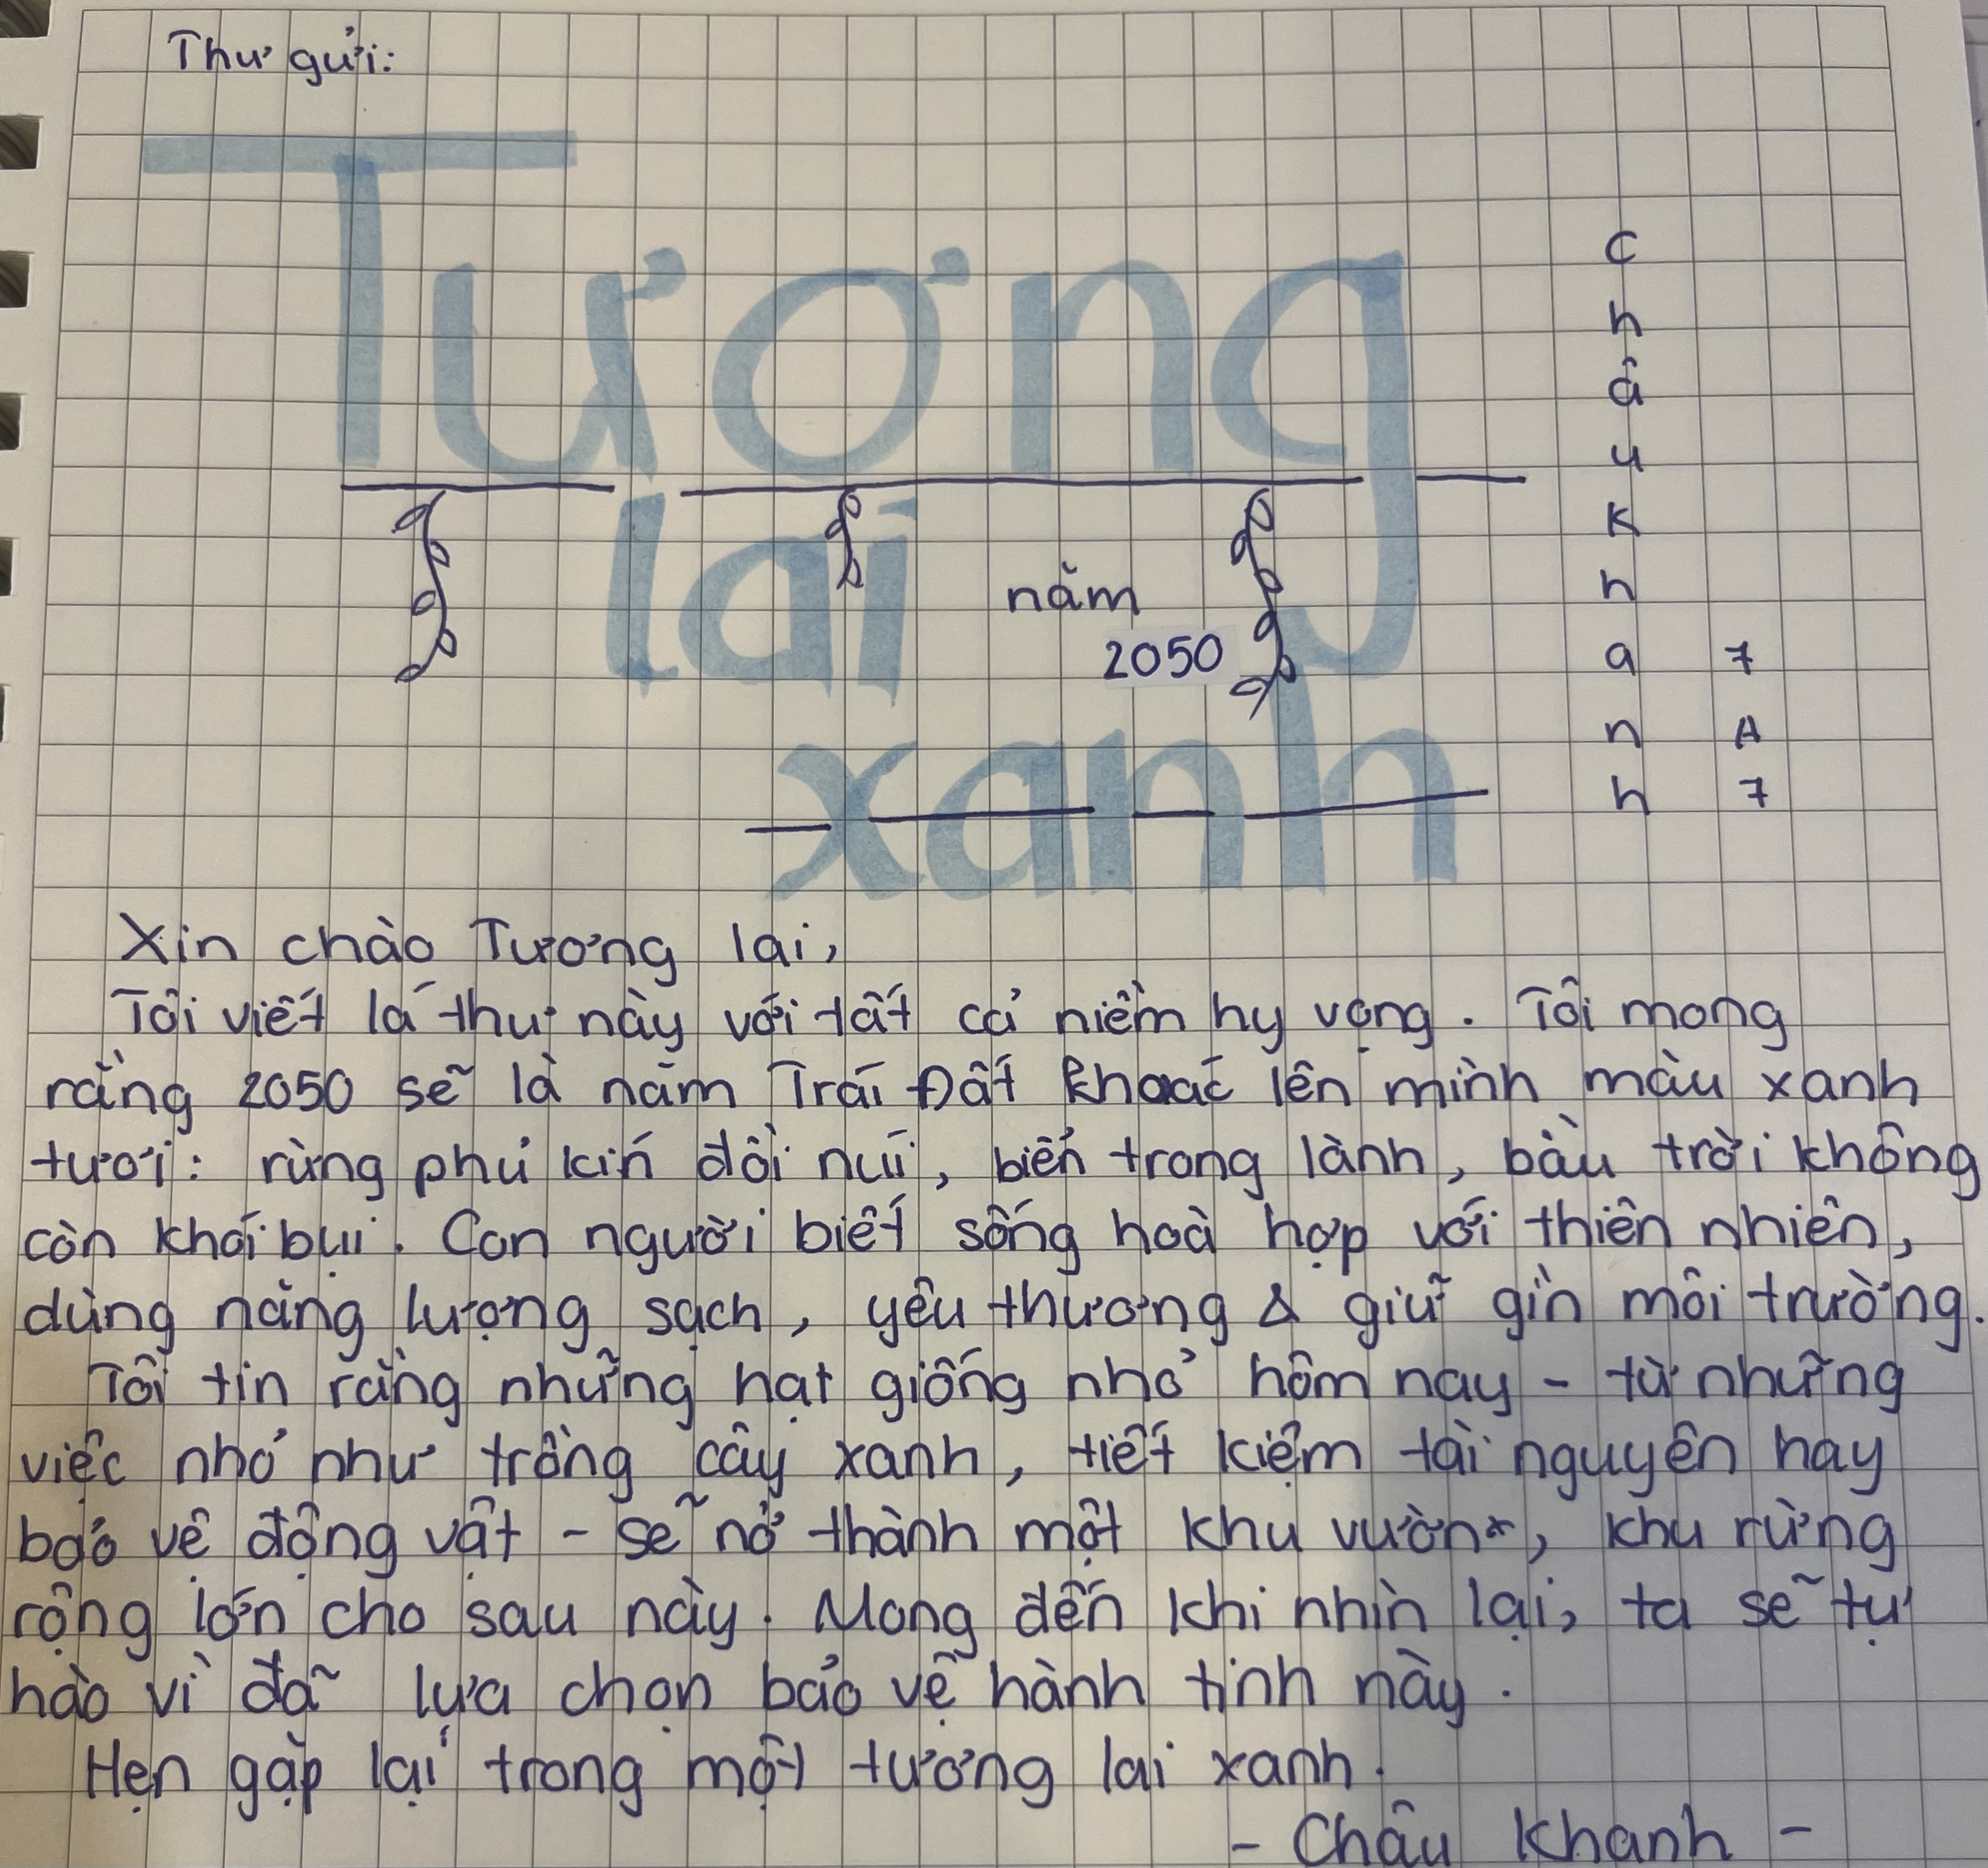 Thư gửi:
Tương
lai
năm
2050
xanh
Châu Khanh
7A7
Xin chào Tương lai,
Tôi viết lá thư này với tất cả niềm hy vọng. Tôi mong
rằng 2050 sẽ là năm Trái Đất khoác lên mình màu xanh
tươi: rừng phủ kín đồi núi, biển trong lành, bầu trời không
còn khói bụi. Con người biết sống hoà hợp với thiên nhiên,
dùng năng lượng sạch, yêu thương & giữ gìn môi trường.
Tôi tin rằng những hạt giống nhỏ hôm nay - từ những
việc nhỏ như trồng cây xanh, tiết kiệm tài nguyên hay
bảo vệ động vật - sẽ nở thành một khu vườn, khu rừng
rộng lớn cho sau này. Mong đến khi nhìn lại, ta sẽ tự
hào vì đã lựa chọn bảo vệ hành tinh này.
Hẹn gặp lại trong một tương lai xanh.
- Châu Khanh -